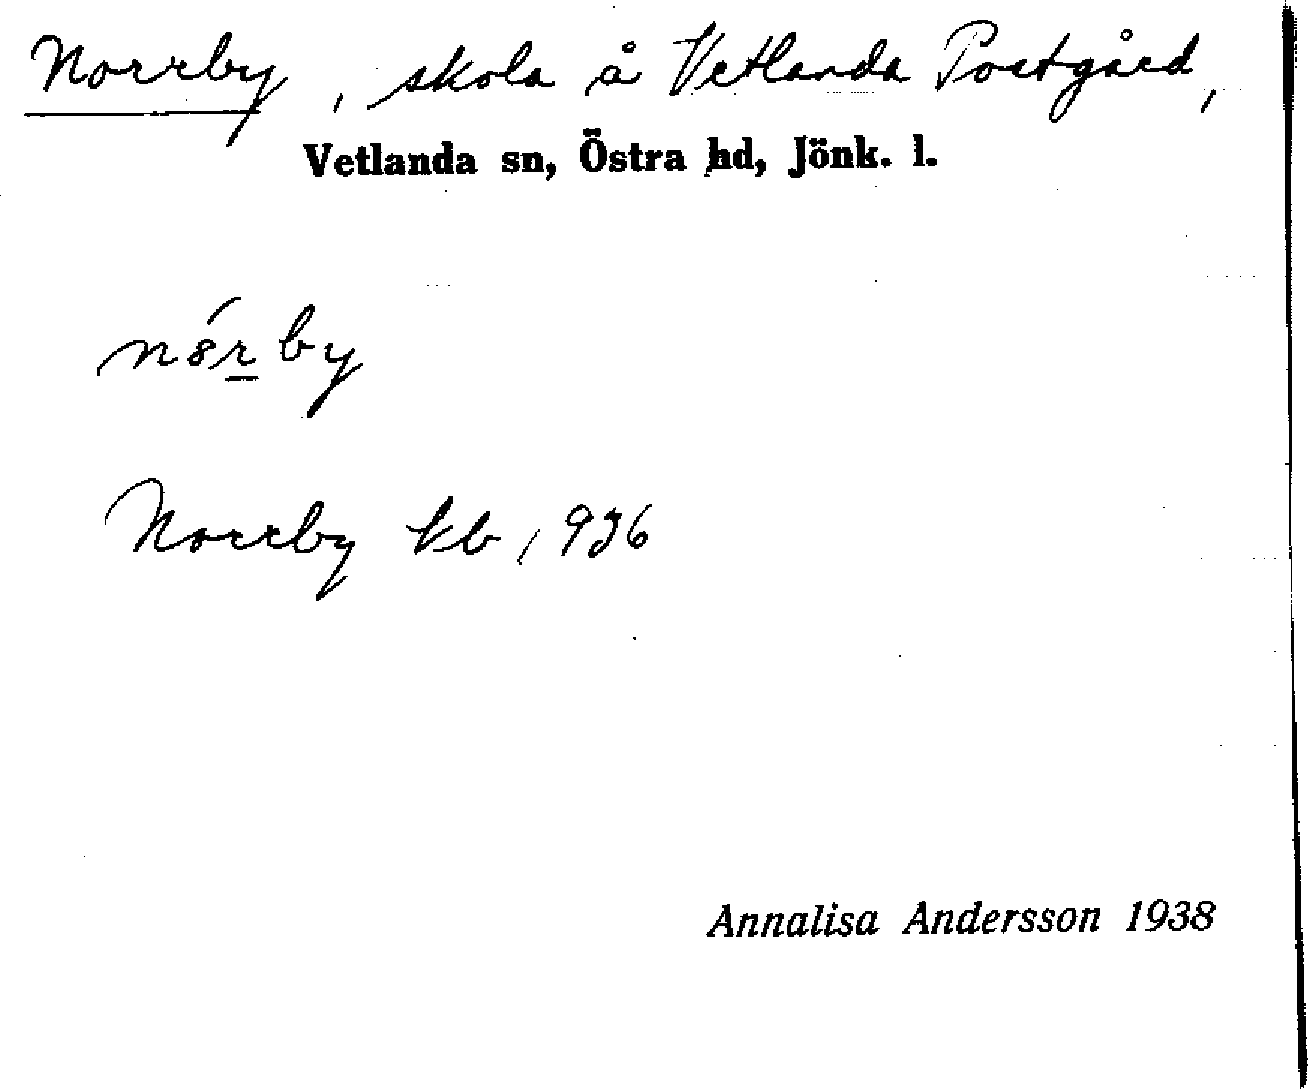 Norrby, skola å Vetlanda Postgård,
Vetlanda sn, Östra hd, Jönk. l.
Norrby kb, 1936
Annalisa Andersson 1938